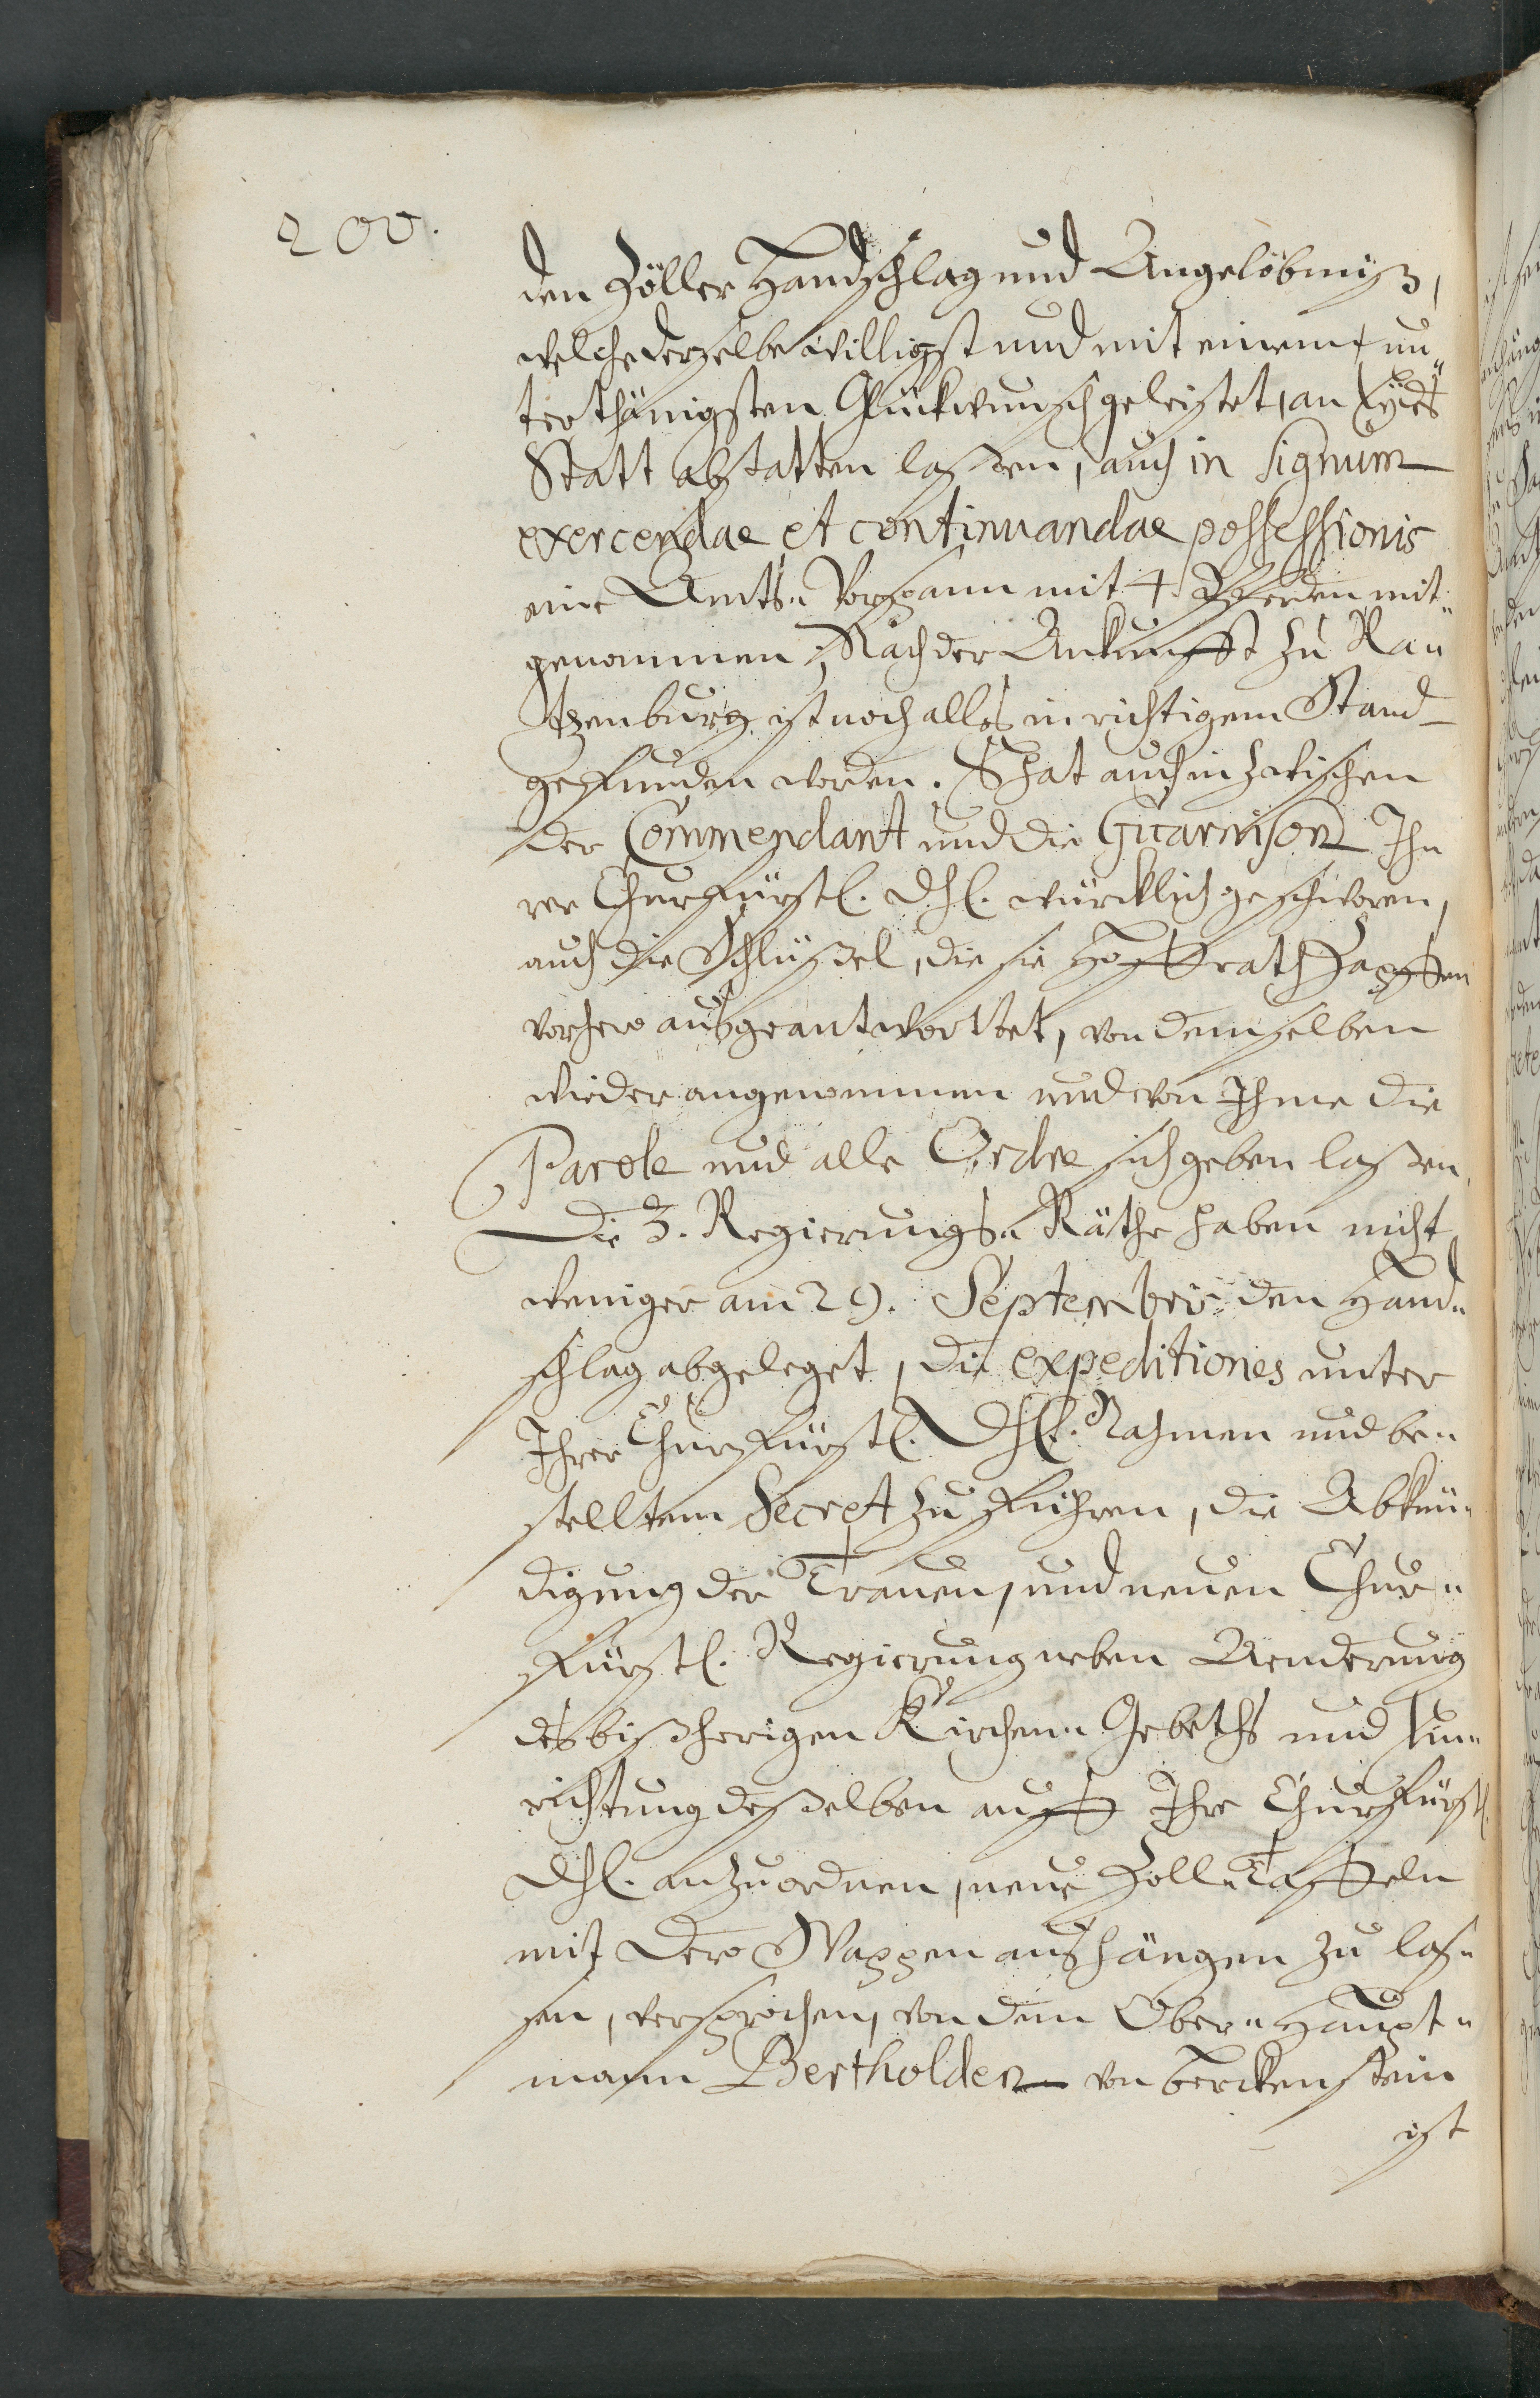 200.
den Zöller Handschlag und Angelöbnüß,
welche derselbe willigst und mit einem un„
terthänigsten Glückwunsch geleistet, an Eydes
Statt abstatten laßen, auch in signum
exercendae et continuandae possessionis
eine Ambts„ Vorspann mit 4. Pferden mit„
genommen; Nach der Ankunfft zu Ra„
tzenburg ist noch alles in richtigem Stand
gefunden worden. Es hat auch inzwischen
der Commendant und die Guarnison Ih„
rer Churfürstl. Dhl. würcklich geschworen,
auch die Schlüßel, die sie Hoffrath
vorhero ausgeantwortet, von demselben
wieder angenommen und von Ihme die
Parole und alle Ordre sich geben laßen,
Die 3. Regierungs„ Räthe haben nicht
weniger am 29. Septembris den Hand„
schlag abgeleget, die expeditiones unter
Ihrer Churfürstl. Dhl. Nahmen und be„
stelltem Secret zu führen, die Abkün„
digung der Trauer, und neuen Chur„
fürstl. Regierung neben Aenderung
des bißherigen Kirchen„ Gebeths und Ein„
richtung deßelben auff Ihre Churfürstl.
Dhl. anzuordnen, neue Zoll„ Taffeln
mit Dero Wappen aushängen zu las„
sen, versprochen, von dem Ober„ Haupt„
mann Bertholden von Berckenstein
ist